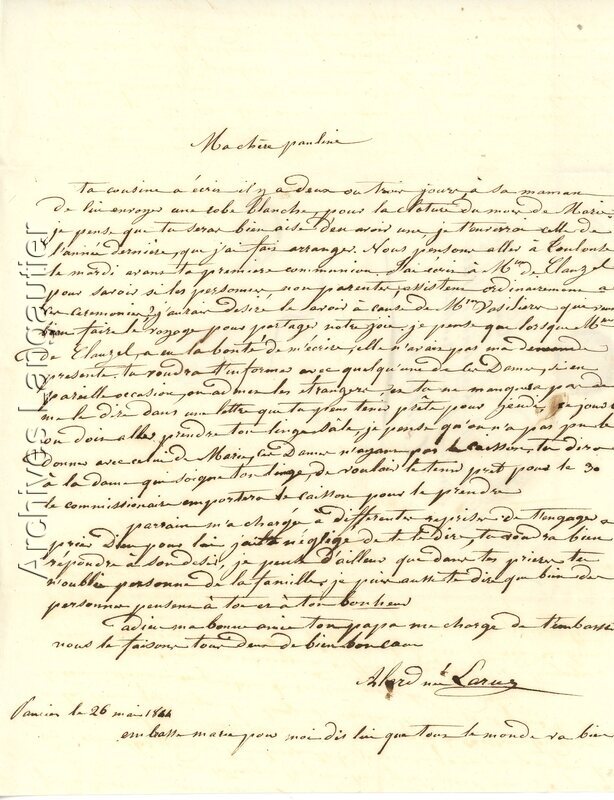 Ma chère pauline
ta cousine à écrit il y a deux ou trois jours, à sa maman
de lui envoyer une robe blanche, pour la cloture du mois de Marie
je pense que tu seras bien aise d'en avoir une, je t'enverrai celle de
l'année dernière, que j'ai fait arranger. Nous pensons aller à Toulouse
le mardi avant ta premiere communion. J'ai écrit à Mme de Clauzel
pour savoir si les personnes non parentes, assistent ordinairement à
ces ceremonies, j'aurais desiré le savoir à cause de Mme qui veut
bien faire le voyage pour partager notre joie. je pense que lorsque Mme
de Clauzel, a eu la bonté de m'écrire, elle n'avait pas ma demande
presente. tu voudras t'informer avec quelqu'une de ces Dames, si en
pareille occasion, on admet les étrangers et tu ne manqueras pas de
me le dire dans une lettre que tu peux tenir prête pour jeudi, ce jour
on doit aller prendre ton linge sale, je pense qu'on n'a pas pu le
donner avec celui de Marie, ces Dames n'ayant pas le caisson, tu diras
à la dame qui soigne ton linge, de vouloir le tenir prêt pour le 30
le commissionaire emportera le caisson pour le prendre
parrain m'a chargé à differentes reprises de t'engager à
prier Dieu pour lui j'ai négligé de te le dire, tu voudras bien
répondre à son desir, je pense d'ailleur que dans tes prieres tu
n'oublie personne de la famille, je puis aussi te dire que bien de
personnes pensent à toi et à ton bonheur
adieu ma bonne amie ton papa me charge de t'embrasser
nous le faisons tous deux de bien bon cœur
née
Pamiers le 26 mai 1844
embrasse marie pour moi dis lui que tout le monde va bien
Archives Lapeautier